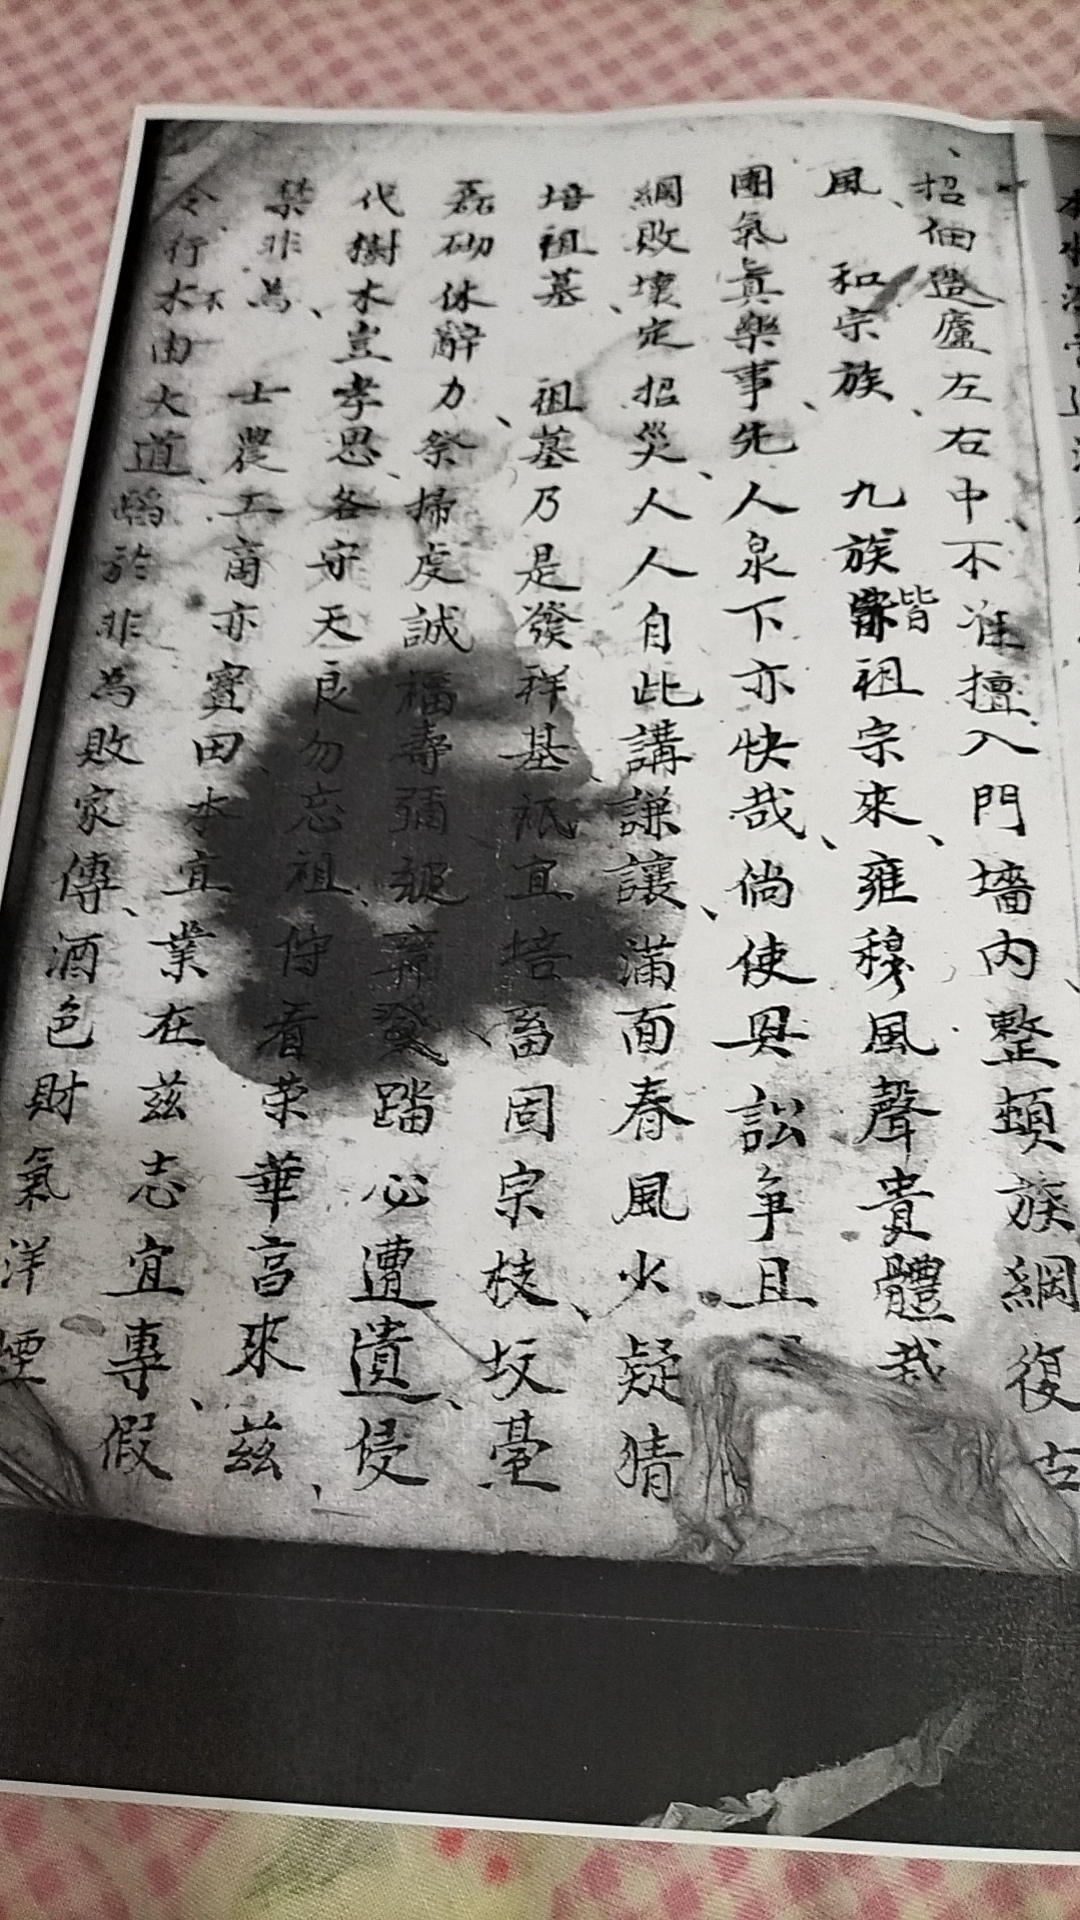 招佃盤廬左右中、不准擅入門墻內整頓族綱復古
風、和宗族、九族皆祖宗來、雍穆風聲貴體哉
團氣真樂事、先人泉下亦快哉、倘使興訟爭且
綱敗壞定招災、人人自此講謙讓、滿面春風火疑猜
培祖墓、祖墓乃是發祥基、祇宜培畜固宗枝、坟毫
磊砌休辭力、祭掃虔誠福壽彌 踏必遭遺、侵
代樹木豈孝思、各守天良勿忘祖、侍看荣華昌來茲、
禁非為、士農工商亦寶田、本宜業在茲志宜專、假
令行不由大道、蹈於非為敗家傳、酒色財氣洋煙